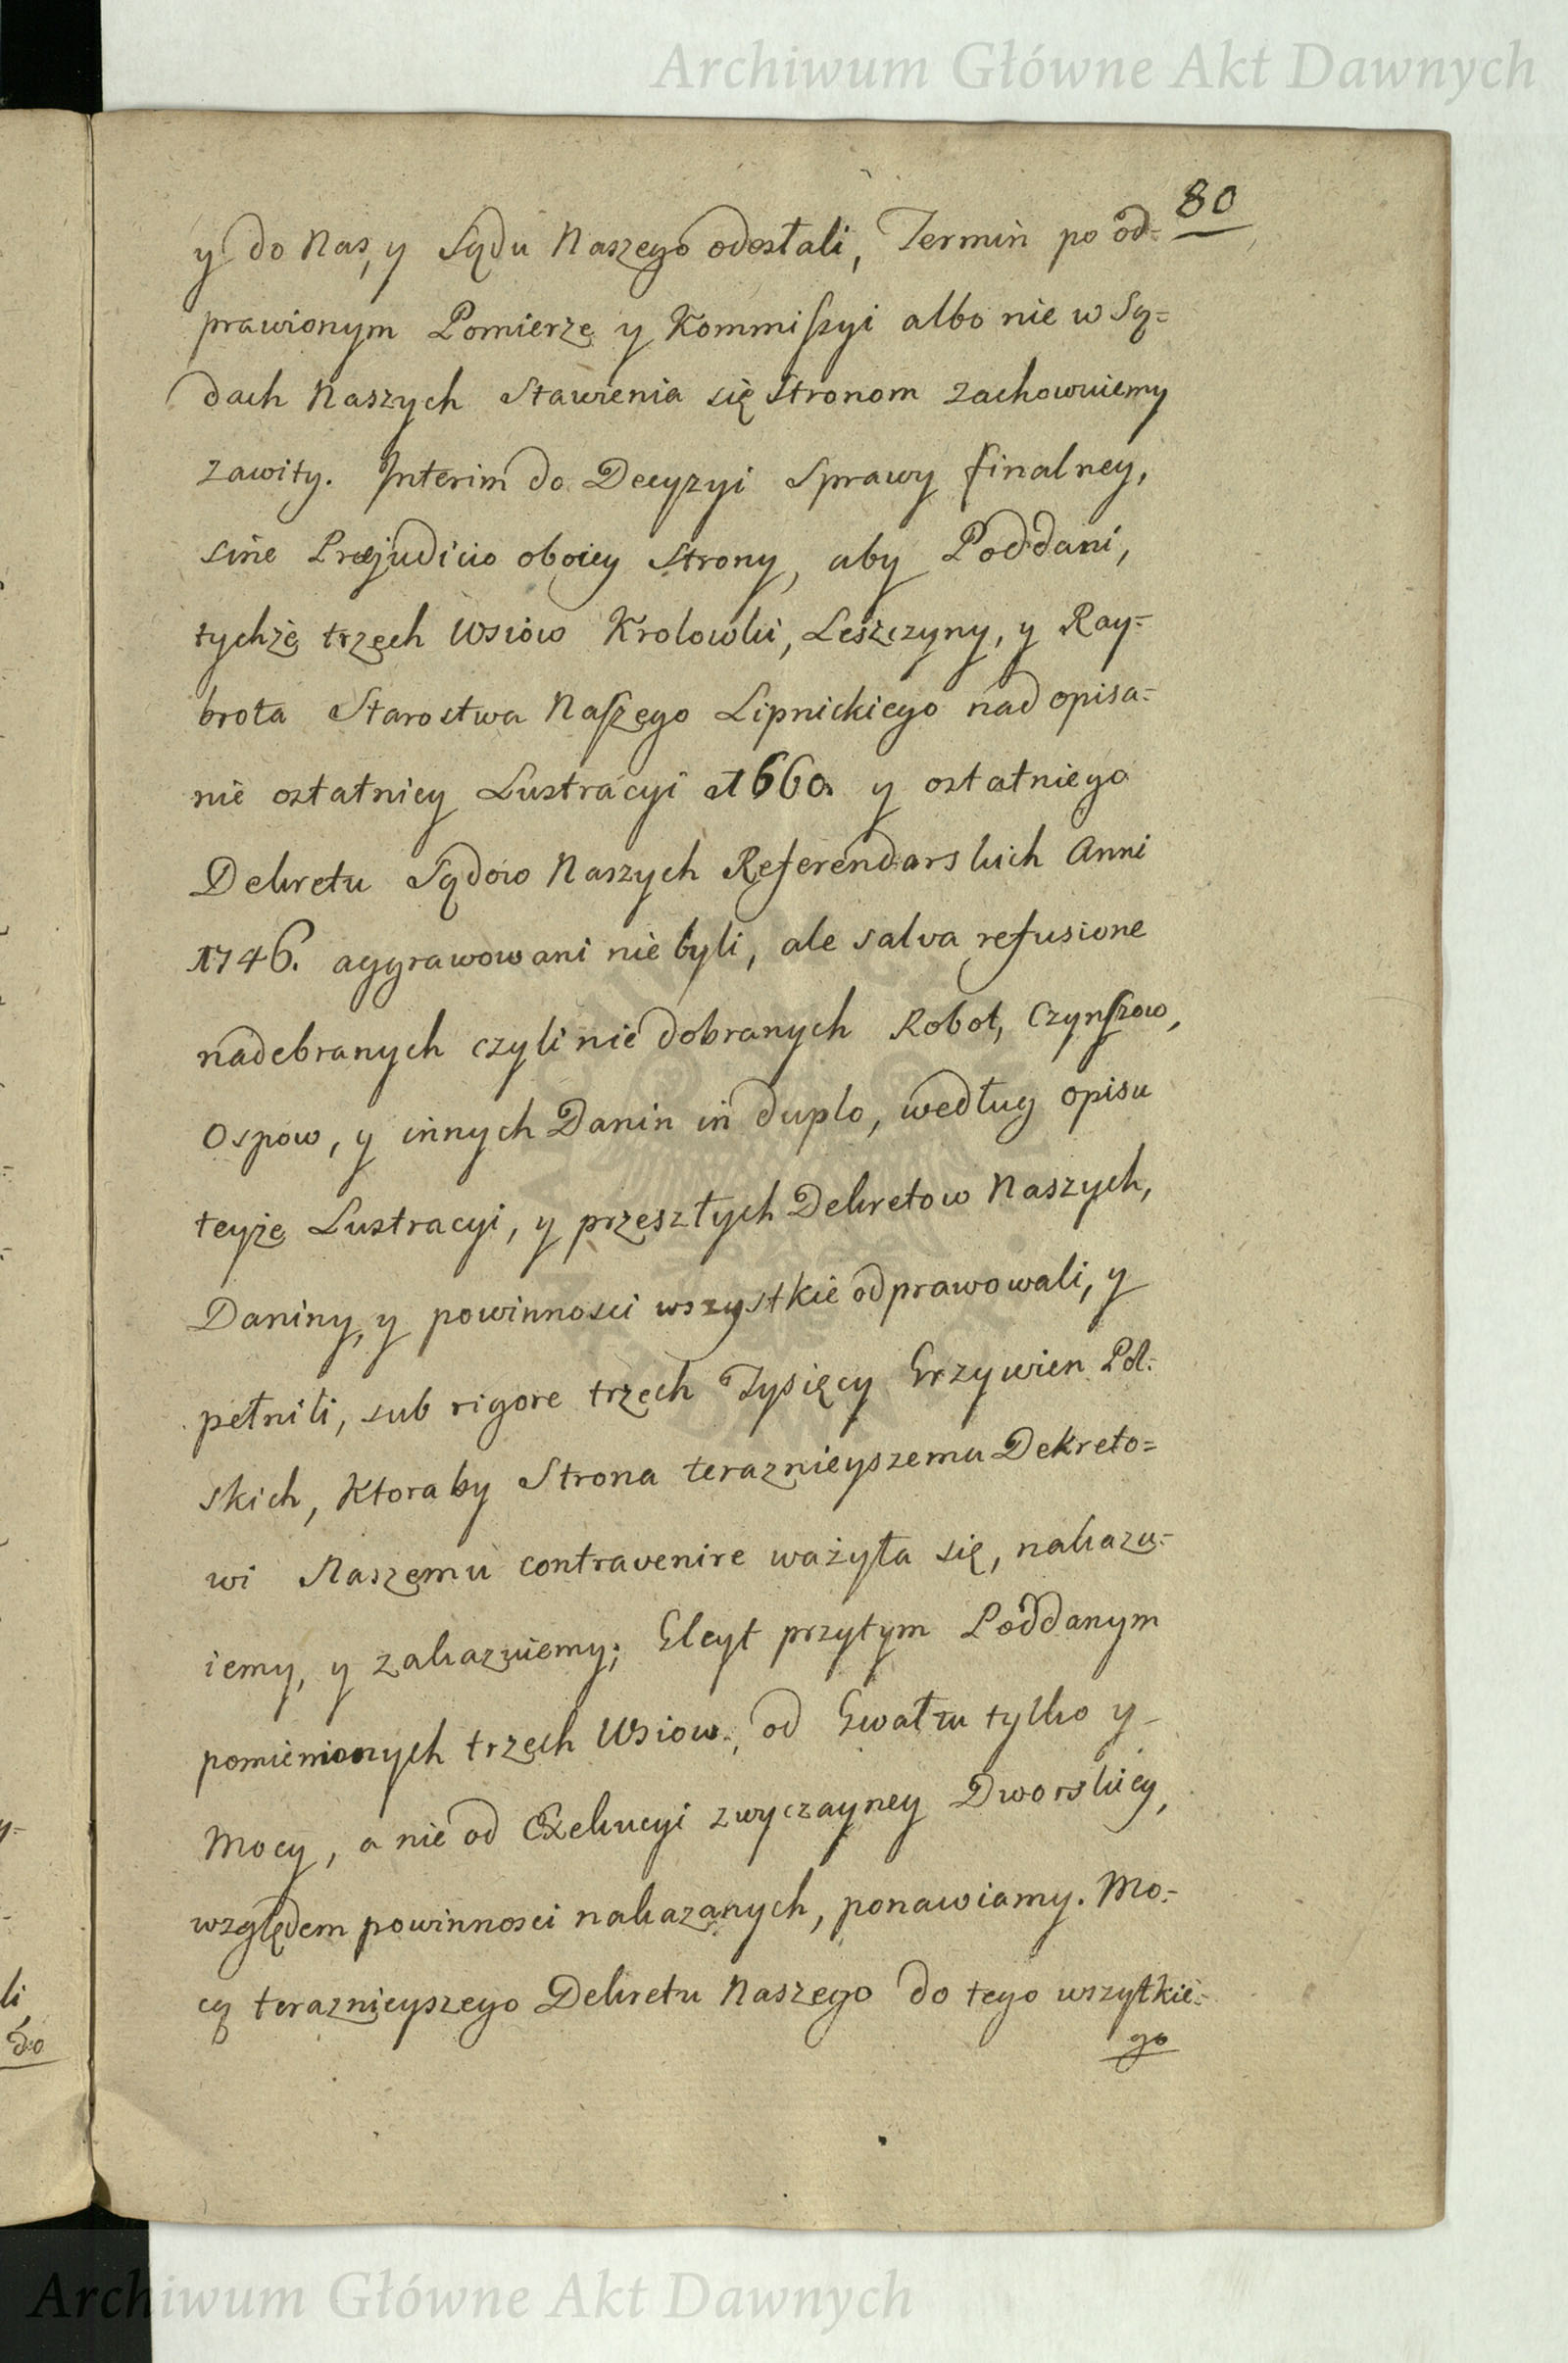 Archiwum Główne Akt Dawnych
80
y do Nas, y Sądu Naszego odesłali, Termin po od=
prawionym Pomierze y Kommiſsyi albo nie w Są=
dach Naszych Stawienia się Stronom zachowuiemy
zawity. Interim do Decyzyi Sprawy finalney,
sine Præjudicio oboiey Strony, aby Poddani,
tychże trzech Wsiow Krolowki, Leszczyny, y Ray=
brota Starostwa Naſzego Lipnickiego nad opisa=
nie ostatniey Lustracyi 1660. y ostatniego
Dekretu Sądow Naszych Referendarskich Anni
1746. aggrawowani nie byli, ale salva refusione
nadebranych czyli nie dobranych Robot, Czynſzow,
Ospow, y innych Danin in duplo, według opisu
teyże Lustracyi, y przeszłych Dekretow Naszych,
Daniny, y powinnosci wszystkie odprawowali, y
pełnili, sub rigore trzech Tysięcy Grzywien Pol=
skich, Ktoraby Strona teraznieyszemu Dekreto=
wi Naszemu contravenire ważyła się, nakazu=
iemy, y zakazuiemy; Gleyt przytym Poddanym
pomienionych trzech Wsiow, od Gwałtu tylko y
Mocy, a nie od Exekucyi zwyczayney Dworskiey,
względem powinnosci nakazanych, ponawiamy. Mo=
cą teraznieyszego Dekretu Naszego do tego wszytkie=
go
li
do
Archiwum Główne Akt Dawnych